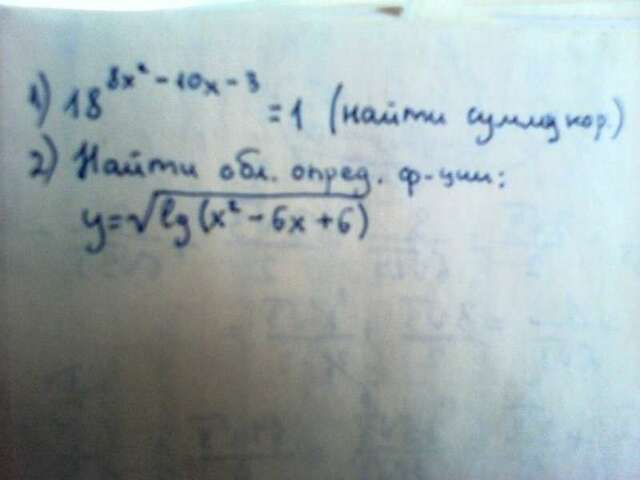 1) 18^(8x² - 10x - 3) = 1 (найти сумму кор.)
2) Найти обл. опред. ф-ции:
y = √lg(x² - 6x + 6)